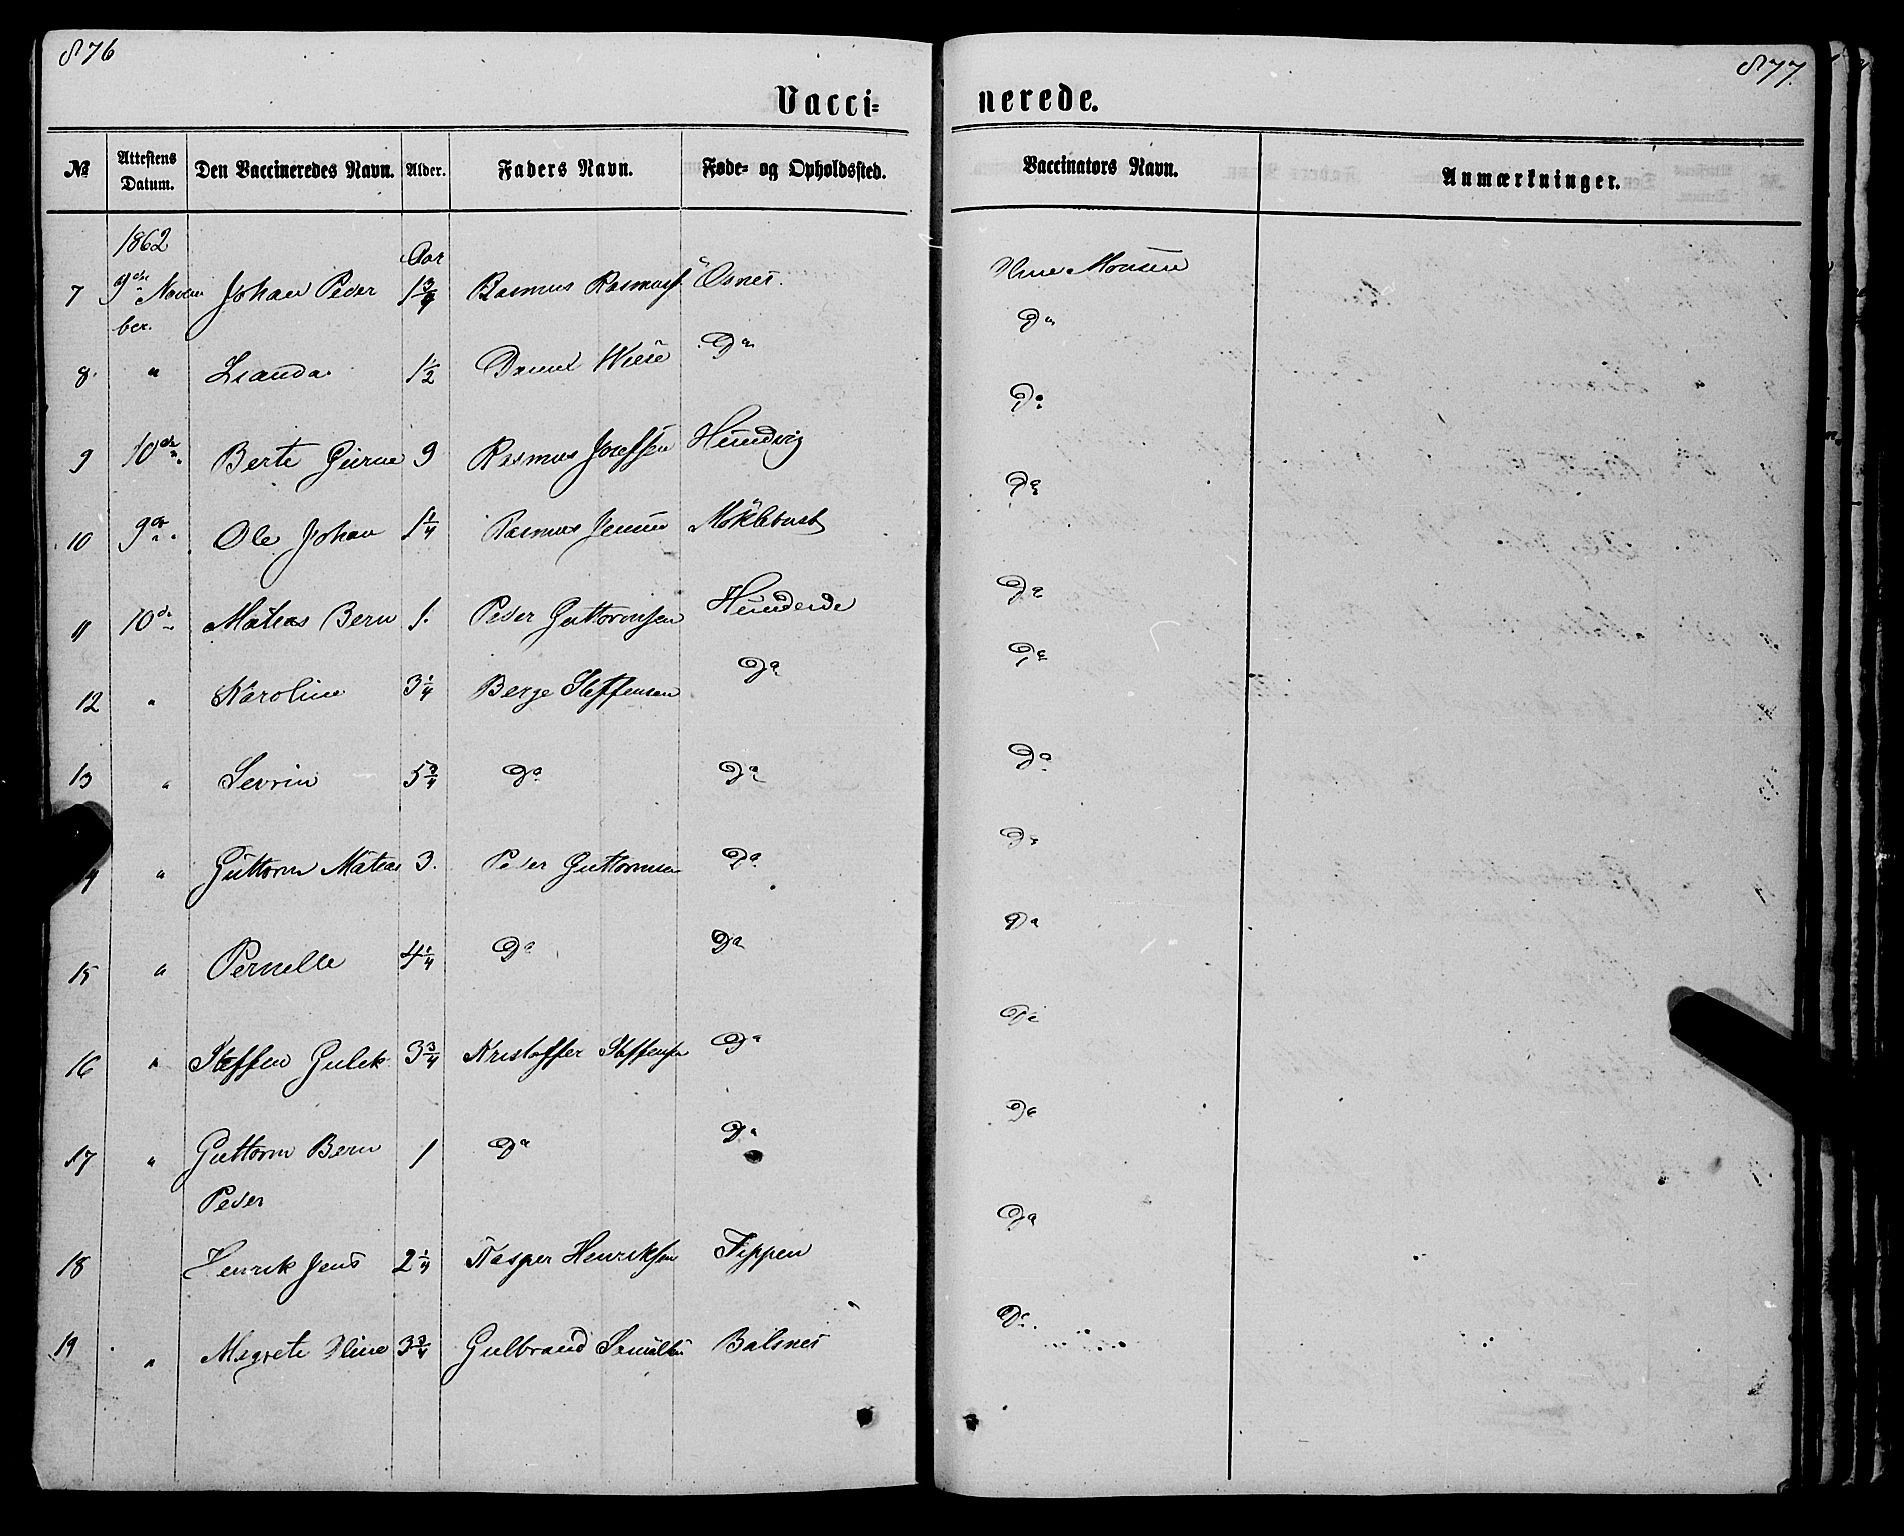 876
877.
Vacci-
nerede.
№ Attestens Datum. Den Vaccineredes Navn. Alder. Faders Navn. Føde- og Opholdssted. Vaccinators Navn. Anmærkninger.
1862 Aar
7 9de Novem Johan Peder 1 3/4 Rasmus Rasmuss. Osnes. Monsen
ber.
8. " 1 1/2 Daniel Do Do
9 10de " Berte 9 Rasmus Josefsen Hundvig Do
10 9de " Ole Johan 1 1/4 Rasmus Jensen Möklebust Do
11 10de Matias Bern 1. Peder Guttormsen Hundeide Do
12 " Karoline 3 1/4 Berge Steffensen Do Do
13 " Sevrin 5 3/4 Do Do Do
" Guttorm Matias 3. Peder Guttormsen Do Do
15 " Pernelle 4 1/4 Do Do Do
16 " Steffen Gulek 3 3/4 Kristoffer Steffensen Do Do
17 " Guttorm Bern 1 Do Do Do
Peder
18 Henrik Jens 2 1/4 Kasper Henriksen Tippen Do
19 " Magrete Oline 3 3/4 Gulbrand Balsnes Do